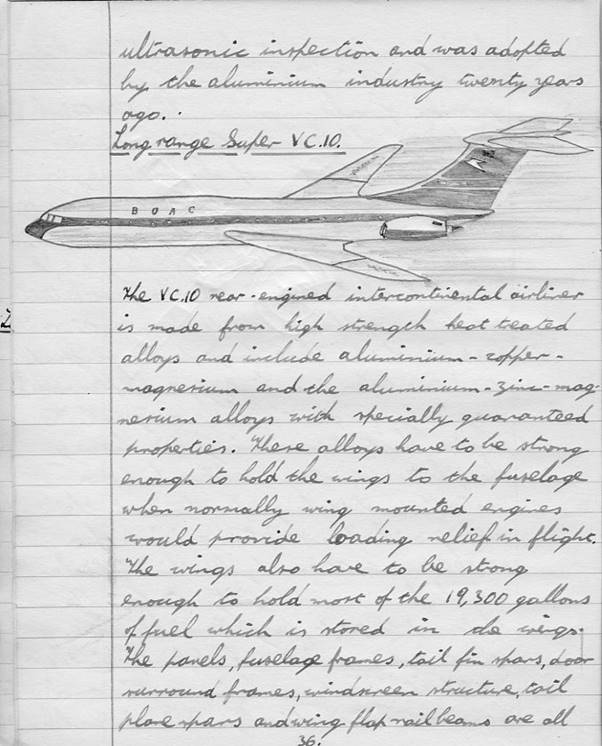 ultrasonic inspection and was adopted
by the aluminium industry twenty years
ago.
Long range Super VC.10.
BOAC
The VC.10 rear-engined intercontinental airliner
is made from high strength heat treated
alloys and include aluminium-copper-
magnesium and the aluminium-zinc-mag-
nesium alloys with specially guaranteed
properties. These alloys have to be strong
enough to hold the wings to the fuselage
when normally wing mounted engines
would provide loading relief in flight.
The wings also have to be strong
enough to hold most of the 19,300 gallons
of fuel which is stored in the wings.
The panels, fuselage frames, tail fin spars, door
surround frames, windscreen structure, tail
plane spars and wing flap rail beams are all
36.